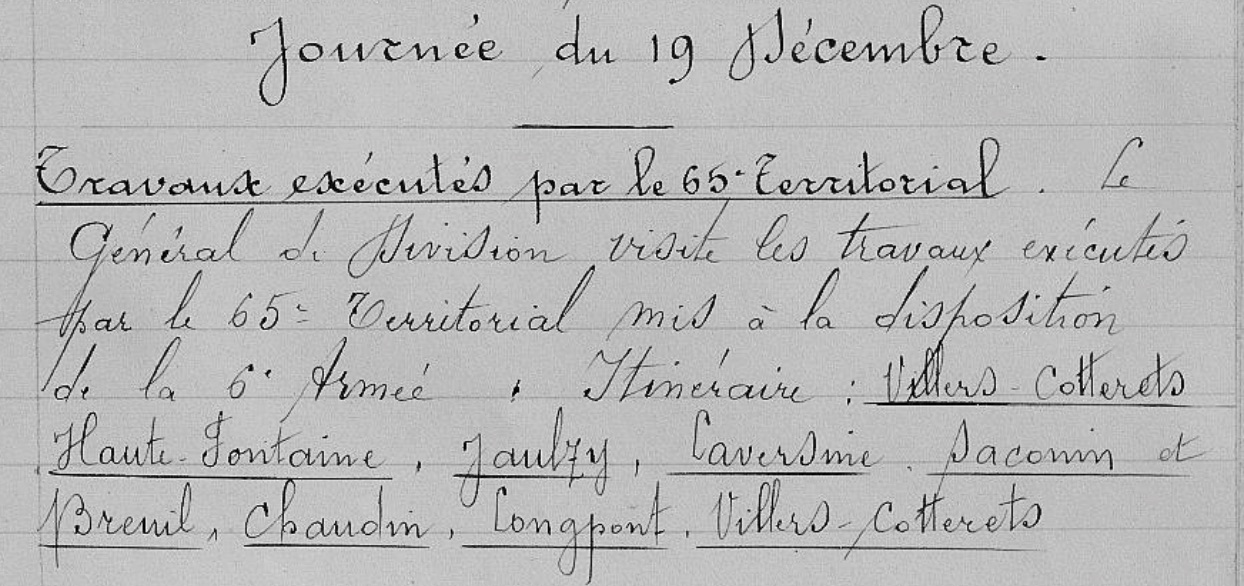 Journée du 19 Décembre.
Travaux exécutés par le 65e Territorial. Le
Général de Division visite les travaux exécutés
par le 65e Territorial mis à la disposition
de la 6e Armée. Itinéraire : Villers-Cotterets
Haute-Fontaine, Jaulzy, Caversine. Saconin et
Breuil, Chaudin, Longpont, Villers-Cotterets